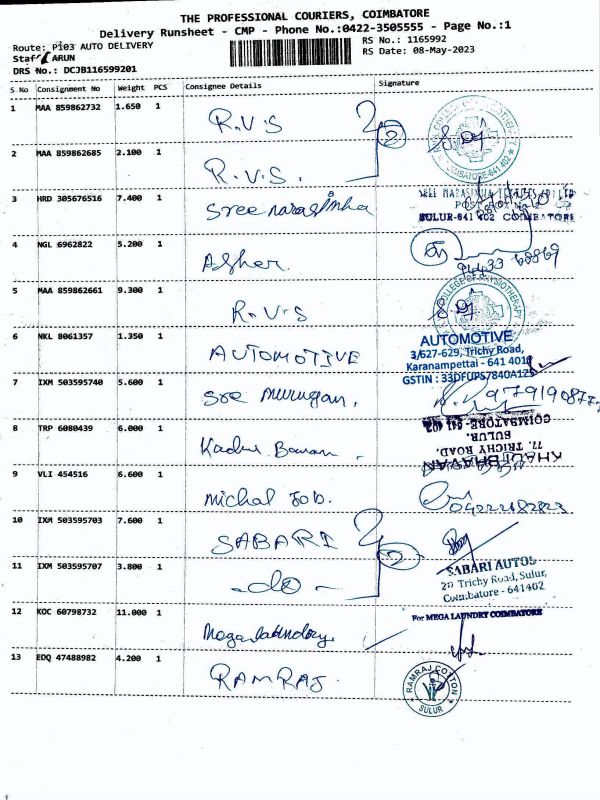 THE PROFESSIONAL COURIERS, COIMBATORE
Delivery Runsheet - CMP - Phone No.:0422-3505555 - Page No.:1
Route: P103 AUTO DELIVERY
RS No.: 1165992
Staff ARUN
RS Date: 08-May-2023
DRS No.: DCJB116599201
S No Consignment No Weight PCS Consignee Details Signature
1 MAA 859862732 1.650 1 R.V.S
2 MAA 859862685 2.100 1 R.V.S.
COIMBATORE-641 402
3 HRD 305676516 7.400 1 Sree narasimha
SULUR-641 402 COIMBATORE
4 NGL 6962822 5.200 1 Asher
5 MAA 859862661 9.300 1 R.V.S
COLLEGE OF PHYSIOTHERAPY
6 NKL 8061357 1.350 1 AUTOMOTIVE
AUTOMOTIVE
3/627-629, Trichy Road,
Karanampettai - 641 401
GSTIN : 33DFUPS7840A1ZS
7 IXM 503595740 5.600 1 Sre murugan.
8 TRP 6080439 6.000 1
COIMBATORE- 641 402
SULUR.
77. TRICHY ROAD.
KHALDI BHAVAN
9 VLI 454516 6.600 1 Michal Job.
10 IXM 503595703 7.600 1 SABARI 2
11 IXM 503595707 3.800 1 -do-
SABARI AUTOS
Trichy Road, Sulur,
Coimbatore - 641402
12 KOC 60798732 11.000 1 Mega laundry
For MEGA LAUNDRY COIMBATORE
13 EDQ 47488982 4.200 1 RAMRAJ
RAMRAJ COTTON
SULUR